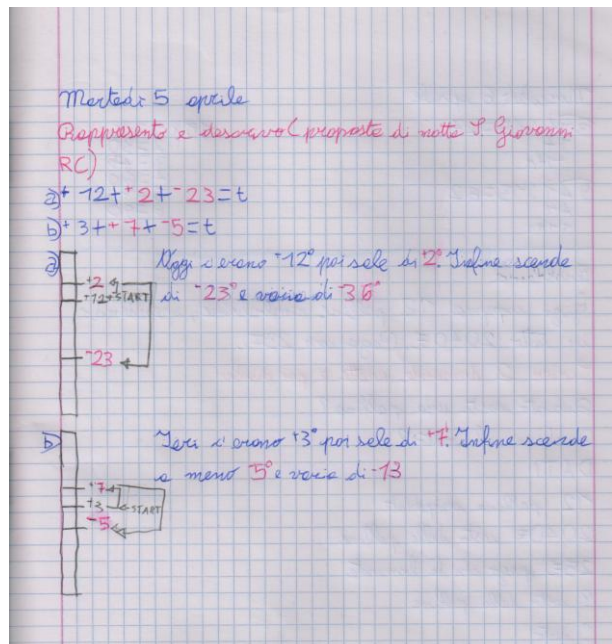 Martedì 5 aprile
Rappresento e descrivo (proposte di notte S Giovanni
RC)
a) +12++2+-23=t
b) +3++7+-5=t
a) Oggi c'erano -12° poi sale di +2°. Infine scende
+2
+12 START di -23° e varia di -36°
-23
b) Ieri c'erano +3° poi sale di +7°. Infine scende
a meno 5° e varia di -13
+7
+3 START
-5